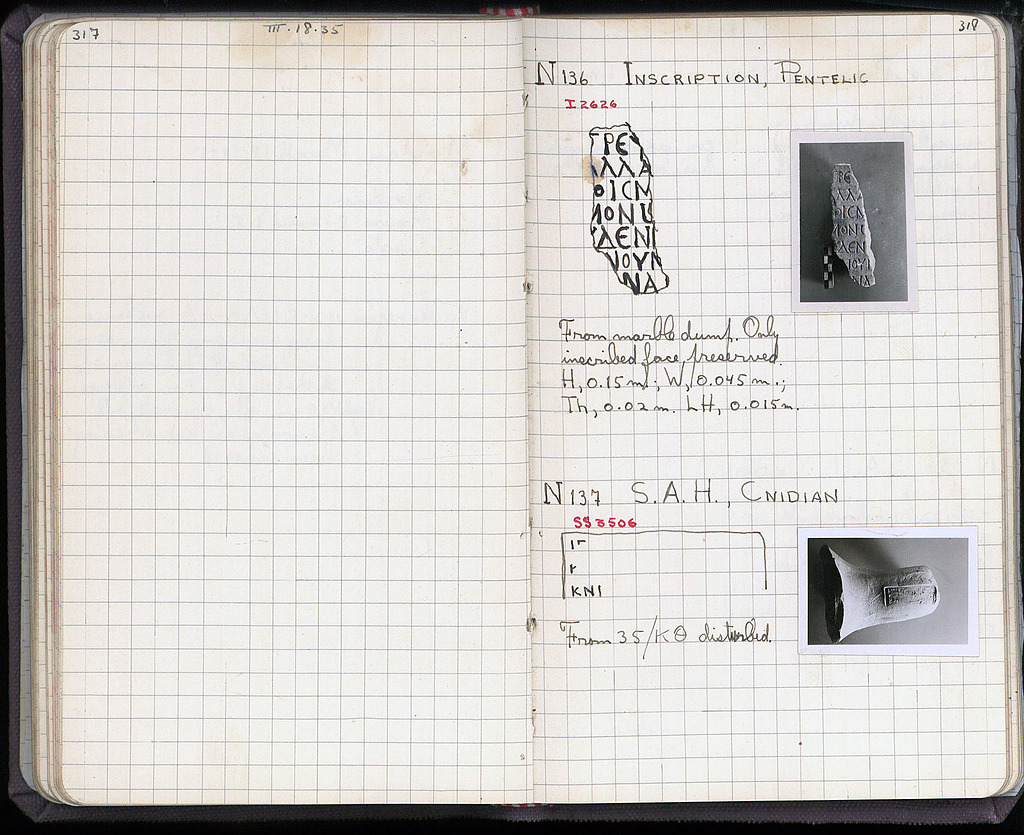 317
III.18.35
318
N 136 INSCRIPTION, PENTELIC
I 2626
ΡΕ
ΛΛΑ
ΟΙϹΜ
ΙΟΝΙ
ΛΕΝΙ
ΝΟΥΝ
ΝΑ
From marble dump. Only
inscribed face, preserved.
H, 0.15 m.; W, 0.045 m.;
Th, 0.02 m. LH, 0.015 m.
N 137 S.A.H., CNIDIAN
SS 3506
ΚΝΙ
From 35/ΚΘ disturbed.